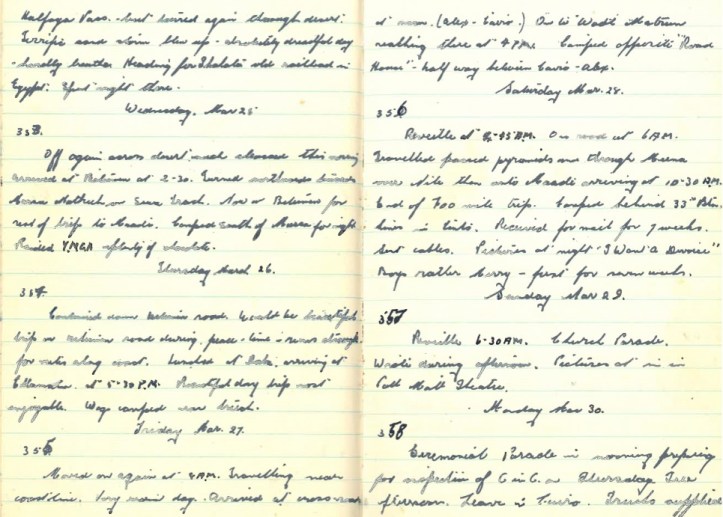 Halfaya Pass. - but turned again through desert.
Terrific sand storm blew up - absolutely dreadful day
- hardly breathe. Heading for old railhead in
Egypt. Spent night there.
Wednesday. Mar 25
353.
Off again across desert and this
arrived at at 2-30. Turned northwards towards
Mersa Matruh on Siwa Track. Now on for
rest of trip to Maadi. Camped south of Mersa for night
Raided Y.M.C.A. plenty of chocolate.
Thursday March 26.
354.
Continued down road. Would be beautiful
trip on road during peace-time - runs
for miles along coast. Lunched at Daba, arriving at
El at 5-30 P.M. Beautiful day trip most
enjoyable. Wogs camped near
Friday Mar. 27.
355
Moved on again at 8 A.M. Travelling near
coastline. Very day. Arrived at cross-roads
at noon. (Alex - Cairo.) On to Wadi Natrun
reaching there at 4 P.M. Camped opposite "Road
House" - half way between Cairo - Alex.
Saturday Mar. 28.
356
Reveille at -45 A.M. On road at 6 A.M.
Travelled passed pyramids and through Mena
over Nile then onto Maadi arriving at 10-30 A.M.
End of 700 mile trip. Camped behind 33rd Btn.
lines in tents. Received for mail for 7 weeks.
Sent cables. Pictures at night "I Want a Divorce"
Boys rather merry - first for seven weeks.
Sunday Mar 29.
357
Reveille 6-30 AM. Church Parade.
Wrote during afternoon. Pictures at in in
Pall Mall Theatre.
Monday Mar 30.
358
Ceremonial Parade in morning preparing
for inspection of C in C. on Thursday. Free
afternoon. Leave in Cairo. Trucks supplied